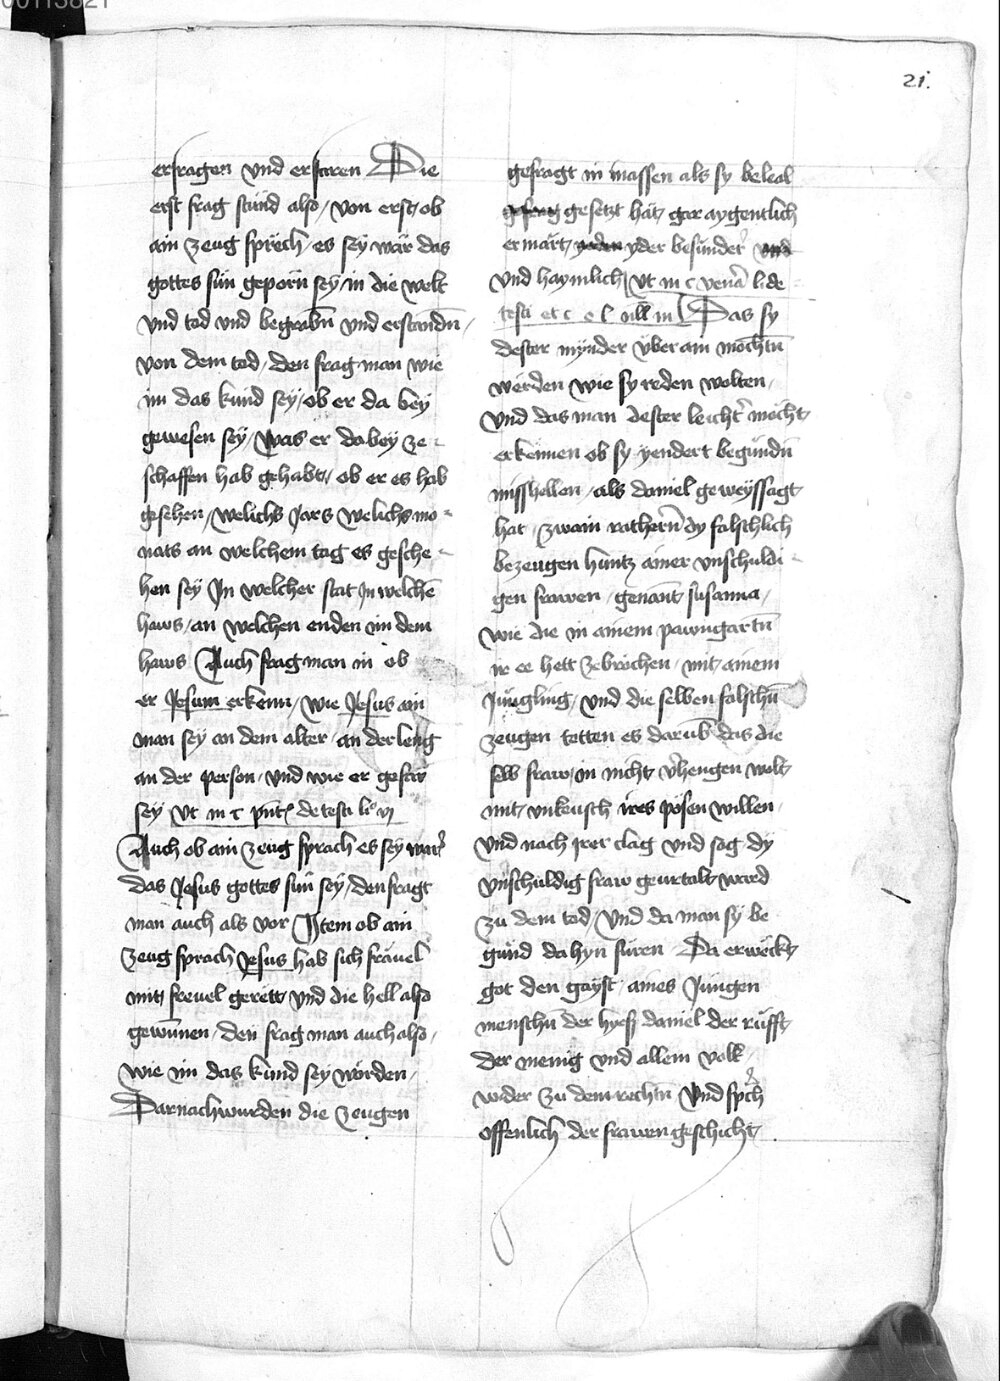 00113821
21.
erfragen vnd erfaren Die
erst frag stund also / von erst / ob
ain zeug sprech / es sey war das
gottes sun geporn sey / in die welt
vnd tod vnd begrabn̄ vnd erstandn̄
von dem tod / den frag man wie
im das kund sey / ob er da bey
gewesen sey / Was er dabey ze
schaffen hab gehabt / ob er es hab
gesehen / welichs Jars welichs mo
nats an welchem tag es gesche
hen sey In welcher stat In welchē
haws / an welchen enden im dem
haws Auch frag man in ob
er Jesum erkenn / wie Jesus ain
man sey an dem alter / an der leng
an der person / vnd wie er gestalt
sey Vt in c de testi li vj
Auch ob ain zeug sprach es sey war
das Jesus gottes sun sey / den fragt
man auch als vor Item ob ain
zeug sprach Jesus hab sich fräuel
mit freuel gerett vnd die hell also
gewunnen / den frag man auch also /
wie im das kund sey worden /
Darnach wurden die zeugen
gefragt in massen als sy beleal
gesetzt hat / gar aygentlich
er mart / yder besunder
vnd haymlich Vt in c
testi et c Das sy
dester mynder vber ain mochtn̄
werden wie sy reden wolten /
Vnd das man dester leicht' mocht
erkennen ob sy yendert begundn̄
misshellen / als daniel geweyssagt
hat / zwain dy falschlich
bezeugen huntz ainer vnschuldi
gen frawen / genant susanna /
wie die in ainem pawngartn̄
ir ee hett zebrochen / mit ainem
Jungling / vnd die selben falschn̄
zeugen tetten es darūb das die
selb fraw in nicht v'hengen wolt
mit vnkeusch ires posen willen
Vnd nach irer clag vnd sag / dy
vnschuldig fraw geurtalt ward
zu dem tod / Vnd da man sy be
gund da hyn furen Da erweckt
got den gayst / aines Jungen
menschn̄ der hyess daniel der rufft
der menig vnd allem volk
wider zu dem rechtn̄ Vnd sp'ch
offenlich der frawen geschicht